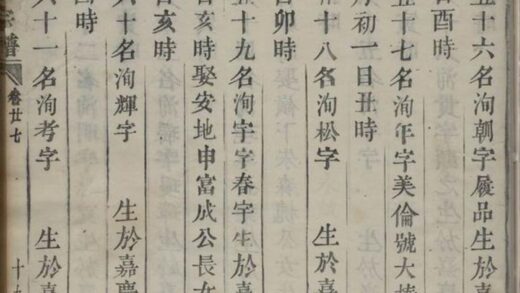 五十六名洵朝字履品生於嘉
酉時
五十七名洵年字美倫號大
初一日丑時
十八名洵松字 生於嘉
卯時
十九名洵宇字春宇生於嘉
亥時娶安地申富成公長女
亥時
六十名洵輝字 生於嘉慶
六十一名洵考字 生於嘉
譜 卷廿七 十